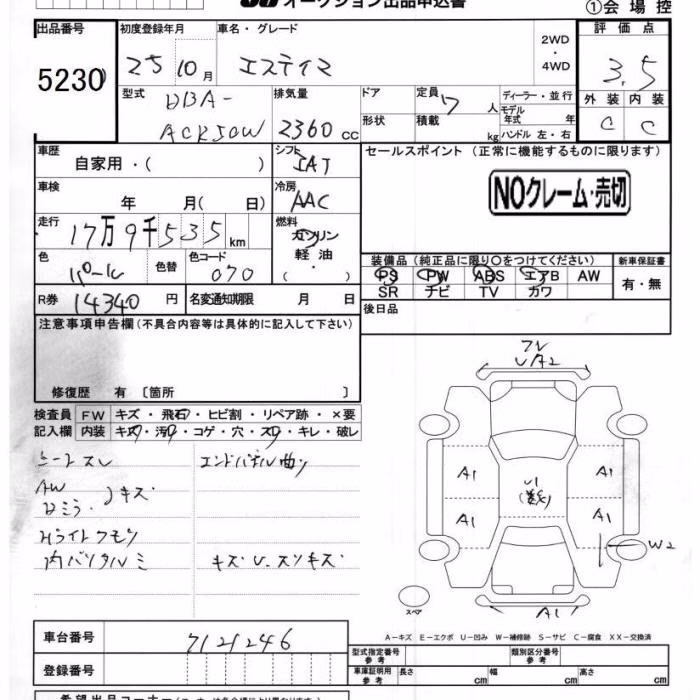 オークション出品申込書
①会場控
出品番号 初度登録年月 車名・グレード 2WD・4WD 評価点
5230 25 10月 エスティマ 3.5
型式 DBA-ACR50W 排気量 2360cc ドア 定員 7人 ディーラー・並行
形状 積載 kg モデル年式 年 ハンドル 左・右
外装 内装
C C
車歴 自家用・( ) シフト IAT セールスポイント (正常に機能するものに限ります)
車検 年 月( 日) 冷房 AAC
NOクレーム・売切
走行 17万9千535km 燃料 ガソリン 軽油 ( ・ )
色 パール 色替 色コード 070
装備品(純正品に限り○をつけてください) 新車保証書
PS PW ABS エアB AW 有・無
SR ナビ TV カワ
R券 14340円 名変通知期限 月 日 後日品
注意事項申告欄(不具合内容等は具体的に記入して下さい)
修復歴 有〔箇所 〕
検査員 FW キズ・飛石・ヒビ割・リペア跡・×要
記入欄 内装 キズ・汚レ・コゲ・穴・スレ・キレ・破レ
シートスレ エンドパネル曲り
AW
ドミラ キズ
Hライトクモリ
内バリタルミ キズU.スリキズ
フレ
UA2
A1 A1
U1
A1 A1
W2
A1
スペア
A-キズ E-エクボ U-凹み W-補修跡 S-サビ C-腐食 XX-交換済
車台番号 7121246 型式指定番号 参考 類別区分番号 参考
登録番号 車庫証明用 参考 長さ cm 幅 cm 高さ cm